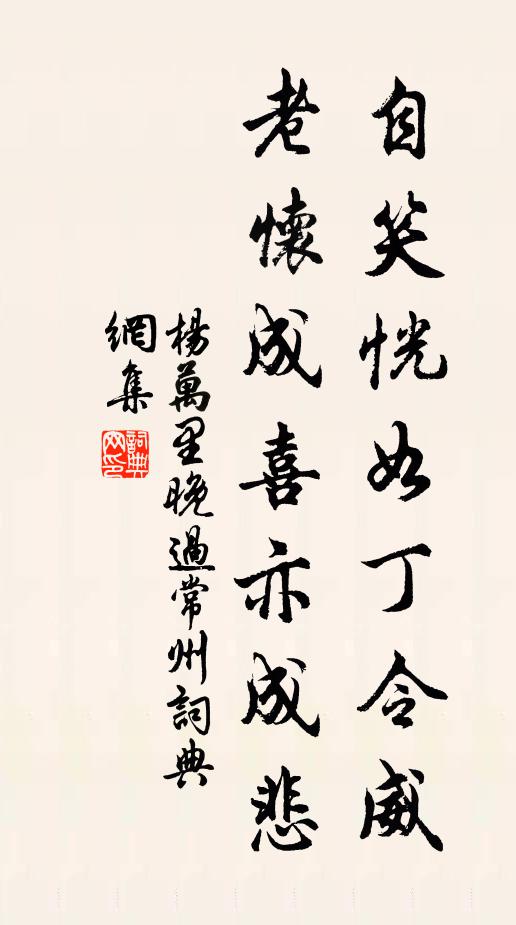 自笑恍如丁令威
老懷成喜亦成悲
楊萬里晚過常州詞典
網集
詞典
网印